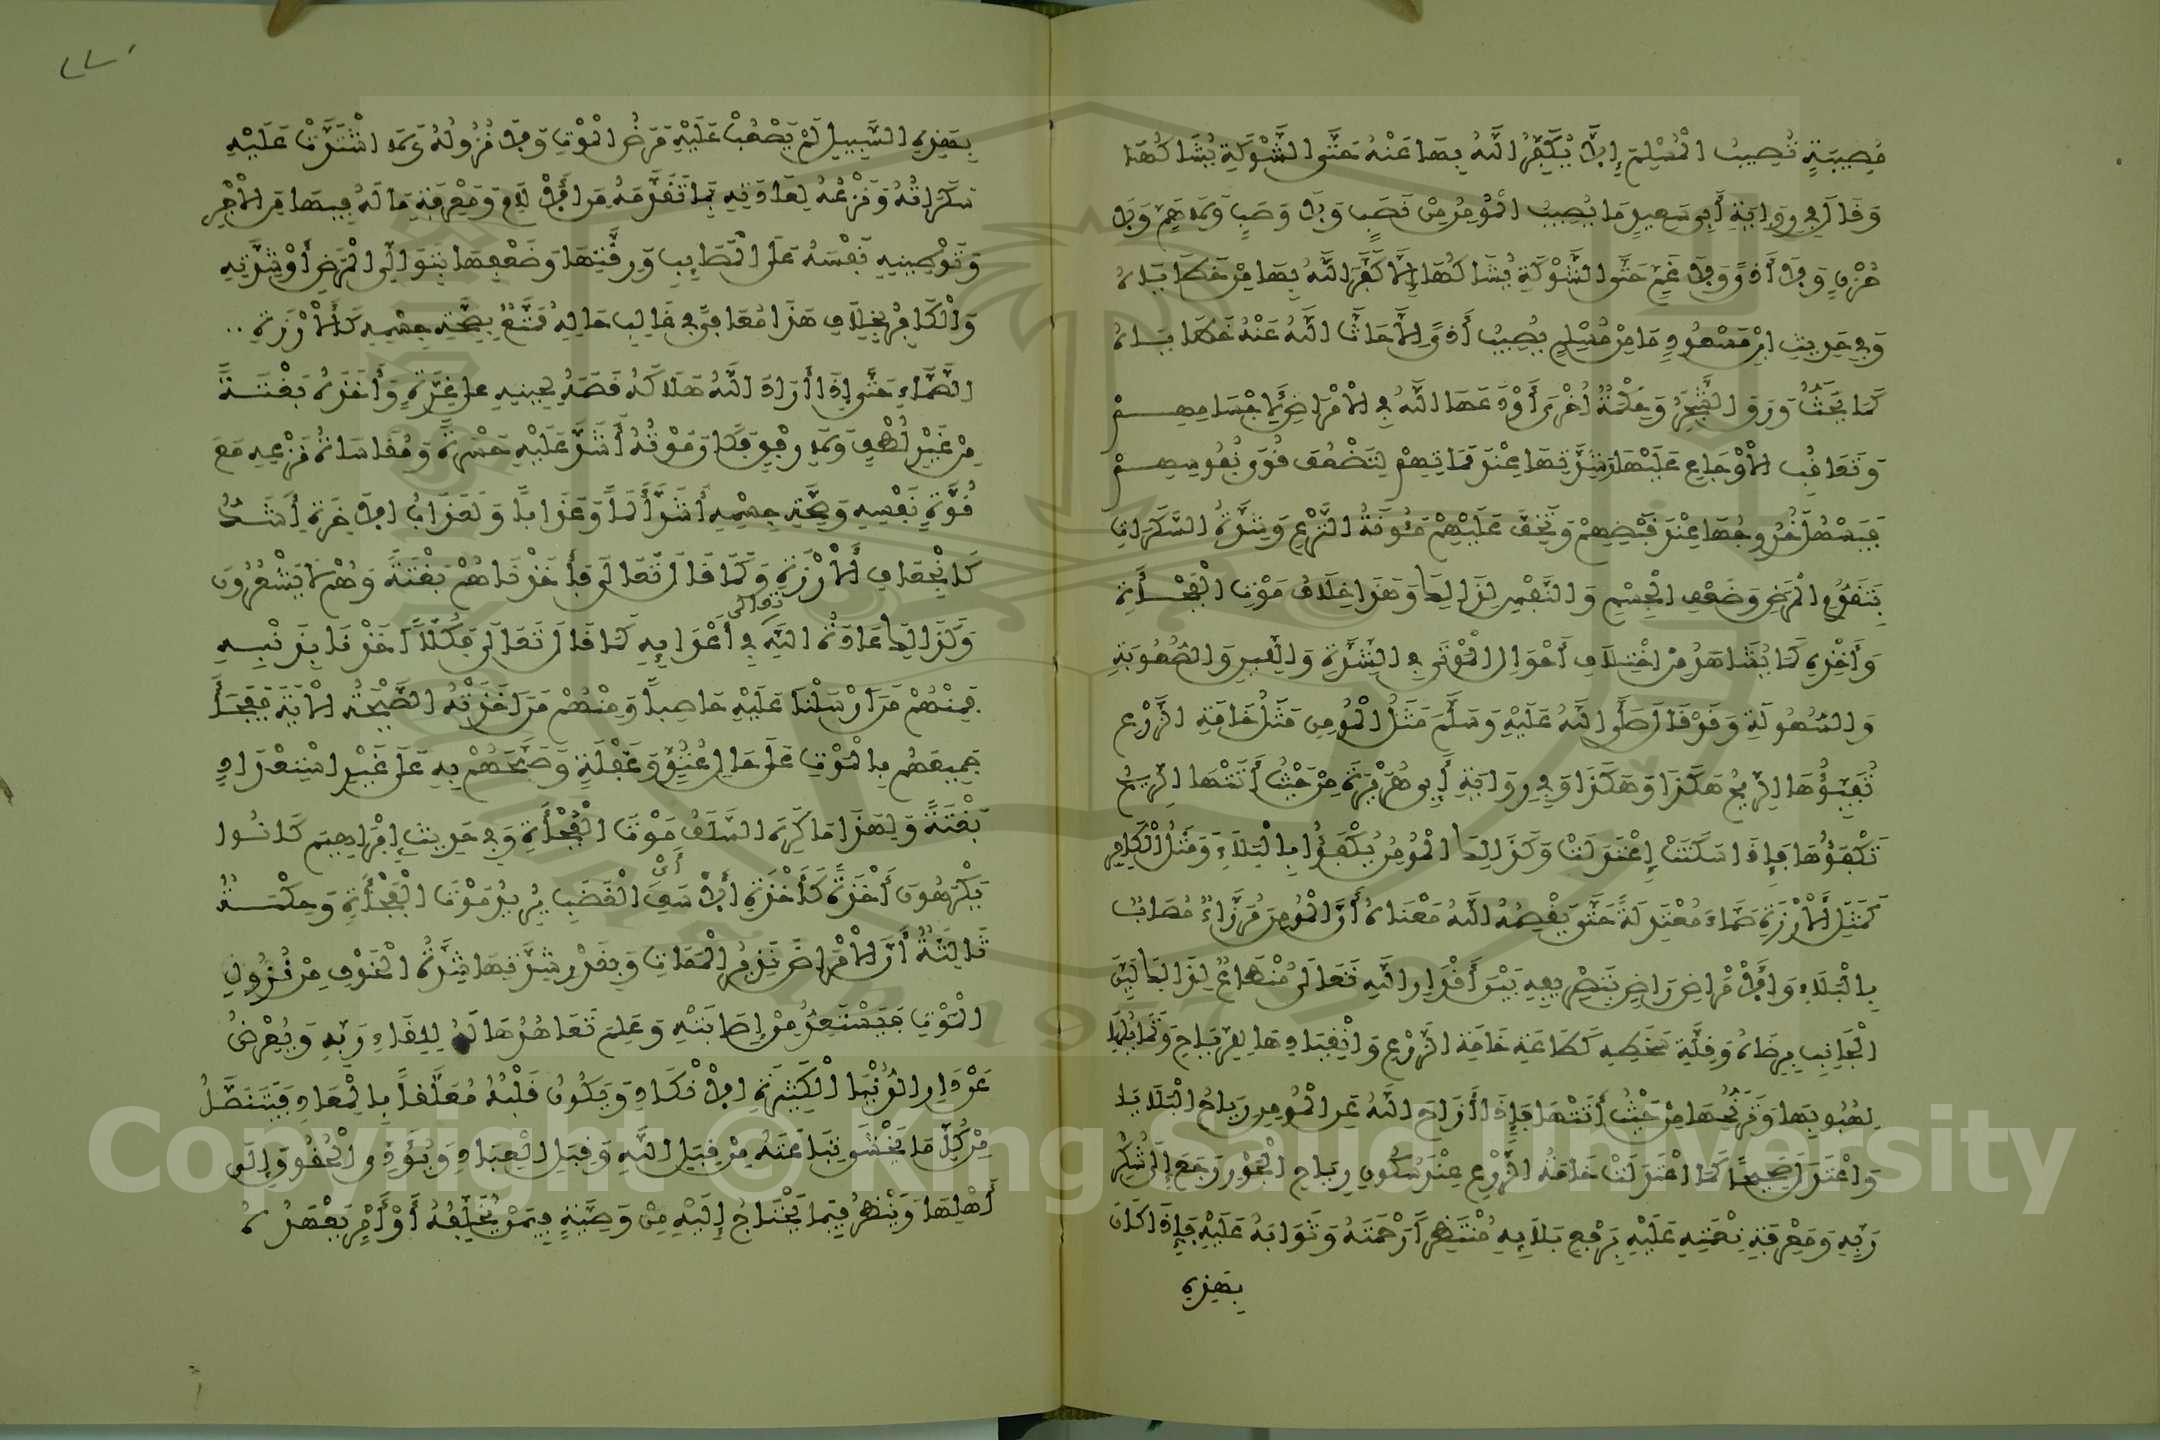 مُصِيبَةٍ تُصِيبُ الْمُسْلِمَ إِلَّا يُكَفِّرُ اللهُ بِهَا عَنْهُ حَتَّى الشَّوْكَةِ يُشَاكُهَا
وَقَالَ فِي رِوَايَةِ أَبِي سَعِيدٍ مَا يُصِيبُ الْمُؤْمِنَ مِنْ نَصَبٍ وَلَا وَصَبٍ وَلَا هَمٍّ وَلَا
حُزْنٍ وَلَا أَذًى وَلَا غَمٍّ حَتَّى الشَّوْكَةِ يُشَاكُهَا إِلَّا كَفَّرَ اللهُ بِهَا مِنْ خَطَايَاهُ
وَفِي حَدِيثِ ابْنِ مَسْعُودٍ مَا مِنْ مُسْلِمٍ يُصِيبُهُ أَذًى إِلَّا حَاتَّ اللهُ عَنْهُ خَطَايَاهُ
كَمَا يُحَتُّ وَرَقُ الشَّجَرِ وَحِكْمَةٌ أُخْرَى أَوْدَعَهَا اللهُ فِي الْأَمْرَاضِ لِأَجْسَامِهِمْ
وَتَعَاقُبِ الْأَوْجَاعِ عَلَيْهَا وَشِدَّتِهَا عِنْدَ مَمَاتِهِمْ لِتَضْعُفَ قُوَى نُفُوسِهِمْ
فَيَسْهُلَ خُرُوجُهَا عِنْدَ قَبْضِهِمْ وَتَخِفَّ عَلَيْهِمْ مَئُونَةُ النَّزْعِ وَشِدَّةُ السَّكَرَاتِ
بِتَقَدُّمِ الْمَرَضِ وَضَعْفِ الْجِسْمِ وَالنَّفْسِ لِذَلِكَ وَهَذَا خِلَافُ مَوْتِ الْفَجْأَةِ
وَأَخْذِهِ كَمَا يُشَاهَدُ مِنِ اخْتِلَافِ أَحْوَالِ الْمَوْتَى فِي الشِّدَّةِ وَاللِّينِ وَالصُّعُوبَةِ
وَالسُّهُولَةِ وَقَدْ قَالَ صَلَّى اللهُ عَلَيْهِ وَسَلَّمَ مَثَلُ الْمُؤْمِنِ مَثَلُ خَامَةِ الزَّرْعِ
تُفَيِّؤُهَا الرِّيحُ هَكَذَا وَهَكَذَا وَفِي رِوَايَةِ أَبِي هُرَيْرَةَ مِنْ حَيْثُ أَتَتْهَا الرِّيحُ
تَكْفَؤُهَا فَإِذَا سَكَنَتْ اِعْتَدَلَتْ وَكَذَلِكَ الْمُؤْمِنُ يُكْفَؤُا بِالْبَلَاءِ وَمَثَلُ الْكَافِرِ
كَمَثَلِ الْأَرْزَةِ صَمَّاءَ مُعْتَدِلَةً حَتَّى يَقْصِمَهُ اللهُ مَعْنَاهُ أَنَّ الْمُؤْمِنَ مُرَزَّأٌ مُصَابٌ
بِالْبَلَاءِ وَالْأَمْرَاضِ رَاضٍ بِتَصْرِيفِهِ بَيْنَ أَقْدَارِ اللهِ تَعَالَى مُنْطَاعٌ لِذَلِكَ لَيِّنُ
الْجَانِبِ بِرِضَاهُ وَقِلَّةِ سَخَطِهِ كَطَاعَةِ خَامَةِ الزَّرْعِ وَانْقِيَادِهَا لِلرِّيَاحِ وَتَمَايُلِهَا
لِهُبُوبِهَا وَتَرَنُّحِهَا مِنْ حَيْثُ أَتَتْهَا فَإِذَا أَزَاحَ اللهُ عَنِ الْمُؤْمِنِ رِيَاحَ الْبَلَايَا
وَاعْتَدَلَ صَحِيحًا كَمَا اعْتَدَلَتْ خَامَةُ الزَّرْعِ عِنْدَ سُكُونِ رِيَاحِ الْجَوِّ رَجَعَ إِلَى شُكْرِ
رَبِّهِ وَمَعْرِفَةِ نِعْمَتِهِ عَلَيْهِ بِرَفْعِ بَلَائِهِ مُنْتَظِرًا رَحْمَتَهُ وَثَوَابَهُ عَلَيْهِ فَإِذَا كَانَ
بِهَذِهِ
بِهَذِهِ السَّبِيلِ لَمْ يَصْعُبْ عَلَيْهِ مَرَضُ الْمَوْتِ وَلَا نُزُولُهُ وَلَا اشْتَدَّتْ عَلَيْهِ
سَكَرَاتُهُ وَنَزْعُهُ لِعَادَتِهِ بِمَا تَقَدَّمَهُ مِنَ الْآلَامِ وَمَعْرِفَةِ مَا لَهُ فِيهَا مِنَ الْأَجْرِ
وَتَوْطِينِهِ نَفْسَهُ عَلَى الْمَصَائِبِ وَرِقَّتِهَا وَضَعْفِهَا بِتَوَالِي الْمَرَضِ أَوْ شِدَّتِهِ
وَالْكَافِرُ بِخِلَافِ هَذَا مُعَافًى فِي غَالِبِ حَالِهِ مُمَتَّعٌ بِصِحَّةِ جِسْمِهِ كَالْأَرْزَةِ
الصَّمَّاءِ حَتَّى إِذَا أَرَادَ اللهُ هَلَاكَهُ قَصَمَهُ لِحِينِهِ عَلَى غِرَّةٍ وَأَخَذَهُ بَغْتَةً
مِنْ غَيْرِ لُطْفٍ وَلَا رِفْقٍ فَكَانَ مَوْتُهُ أَشَدَّ عَلَيْهِ حَسْرَةً وَمُقَاسَاةُ نَزْعِهِ مَعَ
قُوَّةِ نَفْسِهِ وَصِحَّةِ جِسْمِهِ أَشَدَّ أَلَمًا وَعَذَابًا وَلَعَذَابُ الْآخِرَةِ أَشَدُّ
كَانْجِعَافِ الْأَرْزَةِ وَكَمَا قَالَ تَعَالَى فَأَخَذْنَاهُمْ بَغْتَةً وَهُمْ لَا يَشْعُرُونَ
وَكَذَلِكَ عَادَةُ اللهِ تَعَالَى فِي أَعْدَائِهِ كَمَا قَالَ تَعَالَى فَكُلًّا أَخَذْنَا بِذَنْبِهِ
فَمِنْهُمْ مَنْ أَرْسَلْنَا عَلَيْهِ حَاصِبًا وَمِنْهُمْ مَنْ أَخَذَتْهُ الصَّيْحَةُ الْآيَةَ فَفَجَأَ
جَمِيعَهُمْ بِالْمَوْتِ عَلَى حَالِ عُتُوٍّ وَغَفْلَةٍ وَصَبَّحَهُمْ بِهِ عَلَى غَيْرِ اسْتِعْدَادٍ
بَغْتَةً وَلِهَذَا مَا كَرِهَ السَّلَفُ مَوْتَ الْفَجْأَةِ وَفِي حَدِيثِ إِبْرَاهِيمَ كَانُوا
يَكْرَهُونَ أَخْذَةً كَأَخْذَةِ الْأَسَفِ أَيِ الْغَضَبِ يُرِيدُ مَوْتَ الْفَجْأَةِ وَحِكْمَةٌ
ثَالِثَةٌ أَنَّ الْأَمْرَاضَ نَذِيرُ الْمَمَاتِ وَبِقَدْرِ شِدَّتِهَا شِدَّةُ الْخَوْفِ مِنْ نُزُولِ
الْمَوْتِ فَيَسْتَعِدُّ مَنْ إِصَابَتْهُ وَعَلِمَ تَعَاهُدَهَا لَهُ لِلِقَاءِ رَبِّهِ وَيُعْرِضُ
عَنْ دَارِ الدُّنْيَا الْكَثِيرَةِ الْأَنْكَادِ وَيَكُونُ قَلْبُهُ مُعَلَّقًا بِالْمَعَادِ فَيَتَنَصَّلُ
مِنْ كُلِّ مَا يَخْشَى تِبَاعَتَهُ مِنْ قِبَلِ اللهِ وَقِبَلِ الْعِبَادِ وَيُؤَدِّي الْحُقُوقَ إِلَى
أَهْلِهَا وَيَنْظُرُ فِيمَا يَحْتَاجُ إِلَيْهِ مِنْ وَصِيَّةٍ فِيمَنْ يُخَلِّفُهُ أَوْ أَمْرٍ يَعْهَدُهُ
Copyright © King Saud University